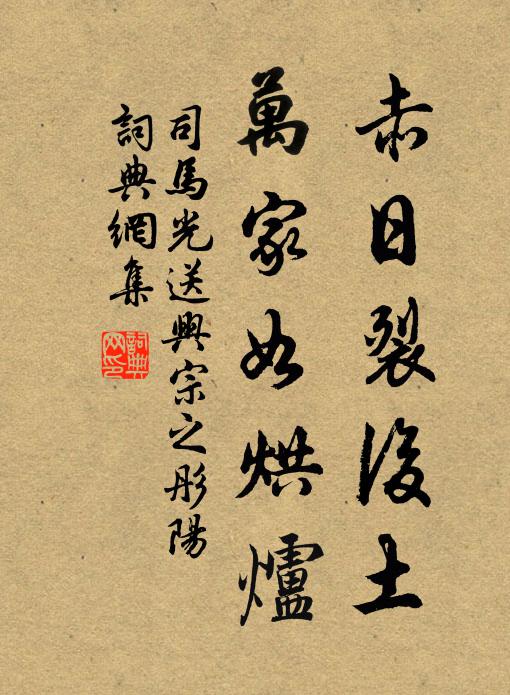 赤日裂後土
萬家如烘爐
司馬光送興宗之彤陽
詞典網集
詞典
网印